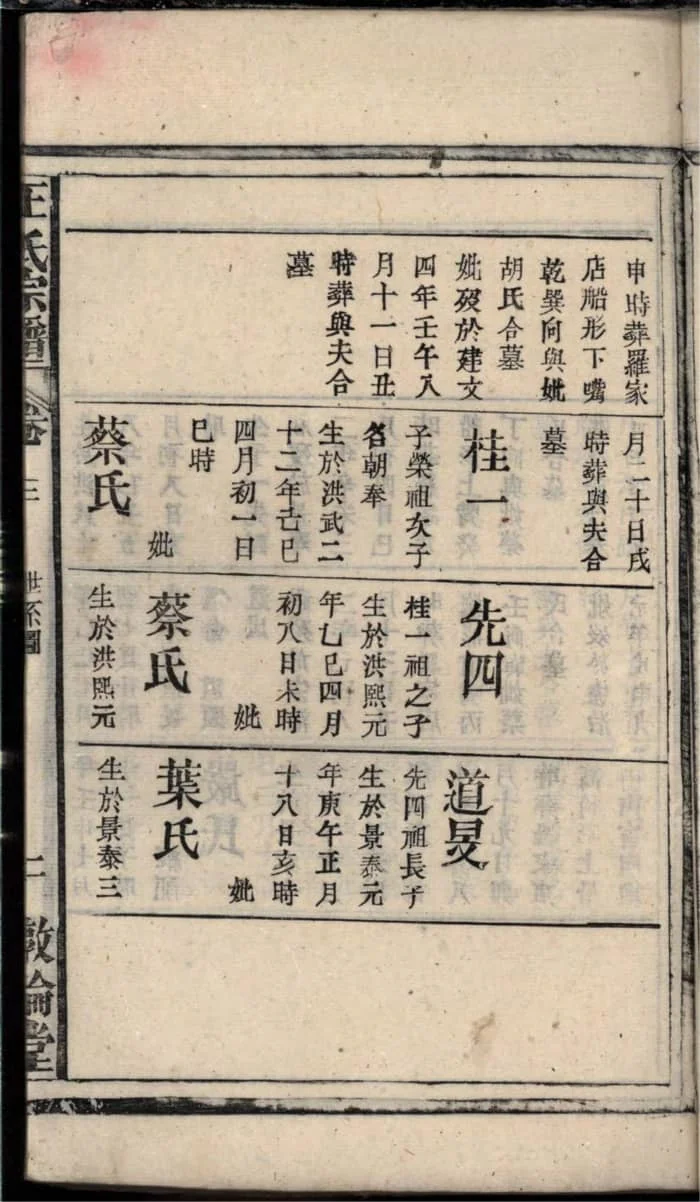 申時葬羅家
店船形下嘴
乾巽向與妣
胡氏合墓
妣歿於建文
四年壬午八
月十一日丑
時葬與夫合
墓
月二十日戌
時葬與夫合
墓
桂一
子榮祖次子
名朝奉
生於洪武二
十二年己巳
四月初一日
巳時
妣
蔡氏
先四
桂一祖之子
生於洪熙元
年乙巳四月
初八日未時
妣
蔡氏
生於洪熙元
道旻
先四祖長子
生於景泰元
年庚午正月
十八日亥時
妣
葉氏
生於景泰三
汪氏宗譜
卷三
世系圖
二
敦倫堂